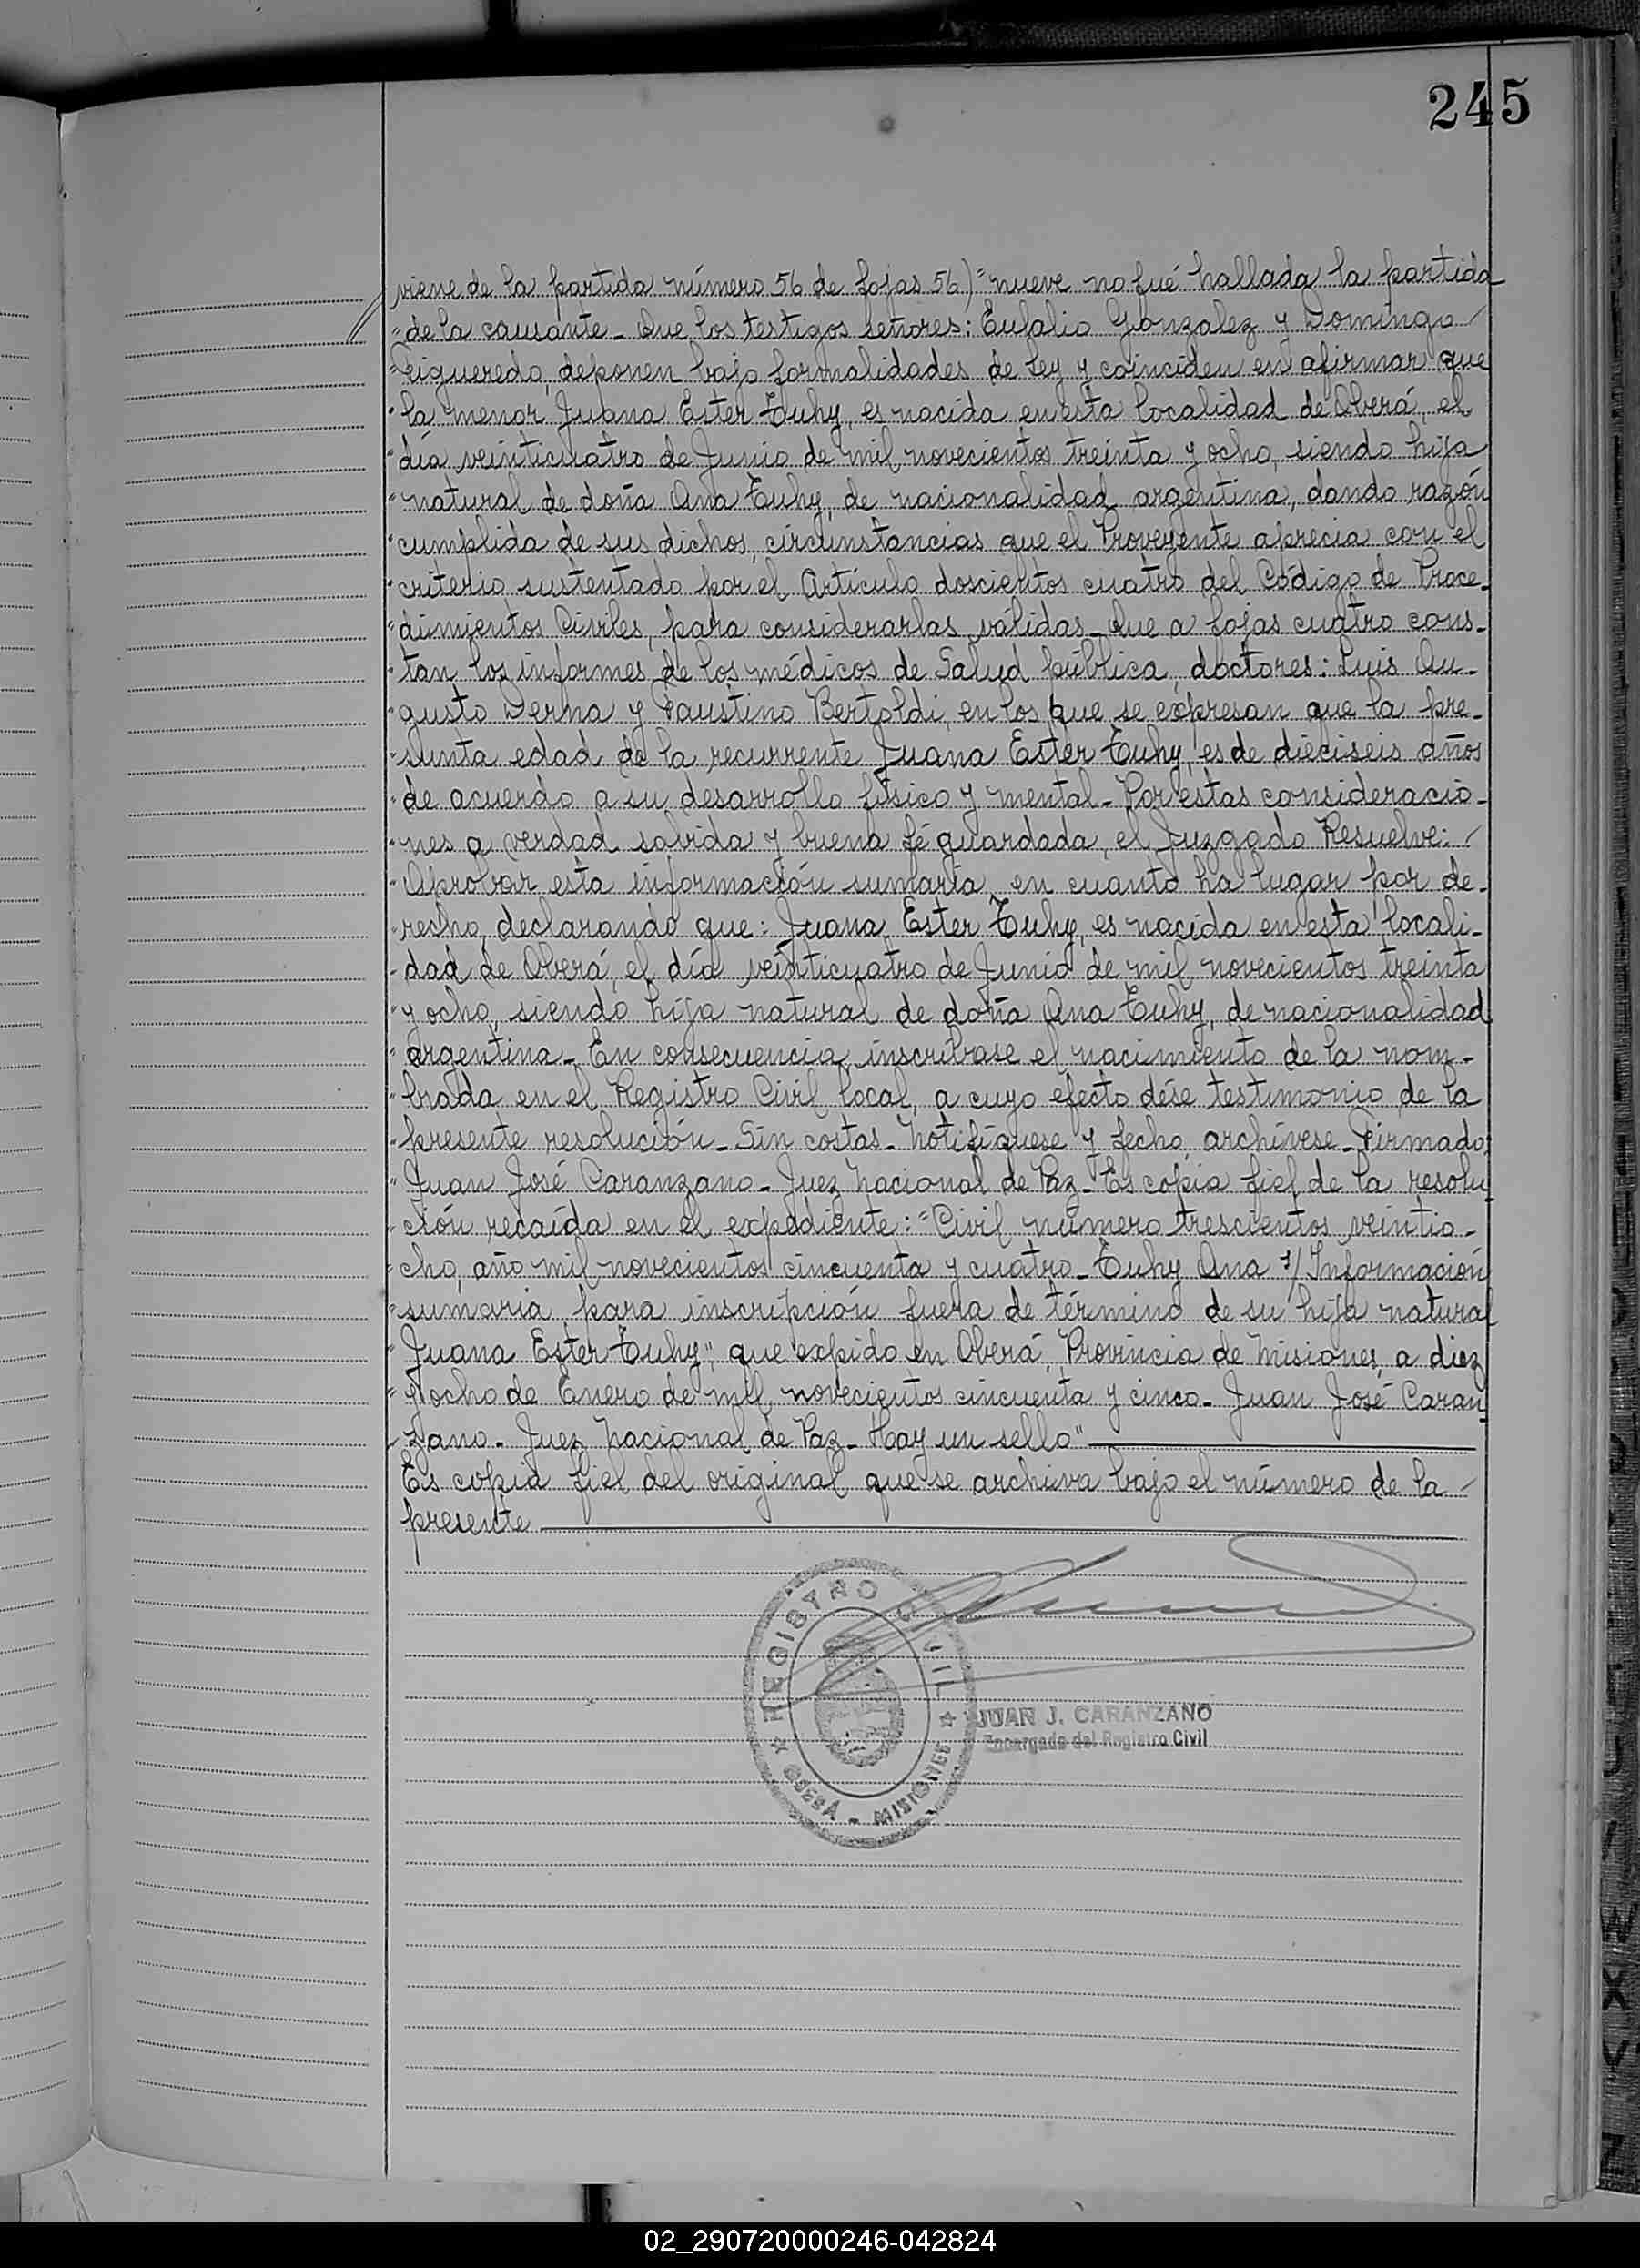 245
viene de la partida número 56 de fojas 56) "nueve no fué hallada la partida
"de la causante_ Que los testigos señores: Eufalio Gonzalez y Domingo
"Figueredo, deponen bajo formalidades de ley y coinciden en afirmar que
"la menor Juana Ester Tuhy, es nacida en esta localidad de Oberá, el
"día veinticuatro de Junio de mil novecientos treinta y ocho, siendo hija
"natural de doña Ana Tuhy, de nacionalidad argentina, dando razón
"cumplida de sus dichos, circunstancias que el Proveyente aprecia con el
"criterio sustentado por el Artículo doscientos cuatro del Código de Proce_
"dimientos Civiles, para considerarlas válidas_ Que a fojas cuatro cons_
"tan los informes de los médicos de Salud pública, doctores: Luis Au_
"gusto Derna y Faustino Bertoldi, en los que se expresan que la pre_
"sunta edad de la recurrente Juana Ester Tuhy, es de dieciseis años
"de acuerdo a su desarrollo físico y mental_ Por estas consideracio_
"nes a verdad sabida y buena fé guardada, el Juzgado Resuelve:
"Aprobar esta información sumaria, en cuanto ha lugar por de_
"recho, declarando que: Juana Ester Tuhy, es nacida en esta locali_
"dad de Oberá, el día veinticuatro de Junio de mil novecientos treinta
"y ocho, siendo hija natural de doña Ana Tuhy, de nacionalidad
"argentina_ En consecuencia, inscríbase el nacimiento de la nom_
"brada en el Registro Civil local, a cuyo efecto dése testimonio de la
"presente resolución_ Sin costas_ Notifíquese y fecho, archívese_ Firmado:
"Juan José Caranzano_ Juez Nacional de Paz_ Es copia fiel de la resolu_
"ción recaída en el expediente: "Civil número trescientos veintio_
"cho, año mil novecientos cincuenta y cuatro_ Tuhy Ana s/ Información
"sumaria para inscripción fuera de término de su hija natural
"Juana Ester Tuhy", que expido en Oberá, Provincia de Misiones, a diez
"y ocho de Enero de mil novecientos cincuenta y cinco_ Juan José Caran_
"zano_ Juez Nacional de Paz_ Hay un sello"
Es copia fiel del original que se archiva bajo el número de la
presente
REGISTRO CIVIL
OBERÁ - MISIONES
JUAN J. CARANZANO
Encargado del Registro Civil
02_290720000246-042824